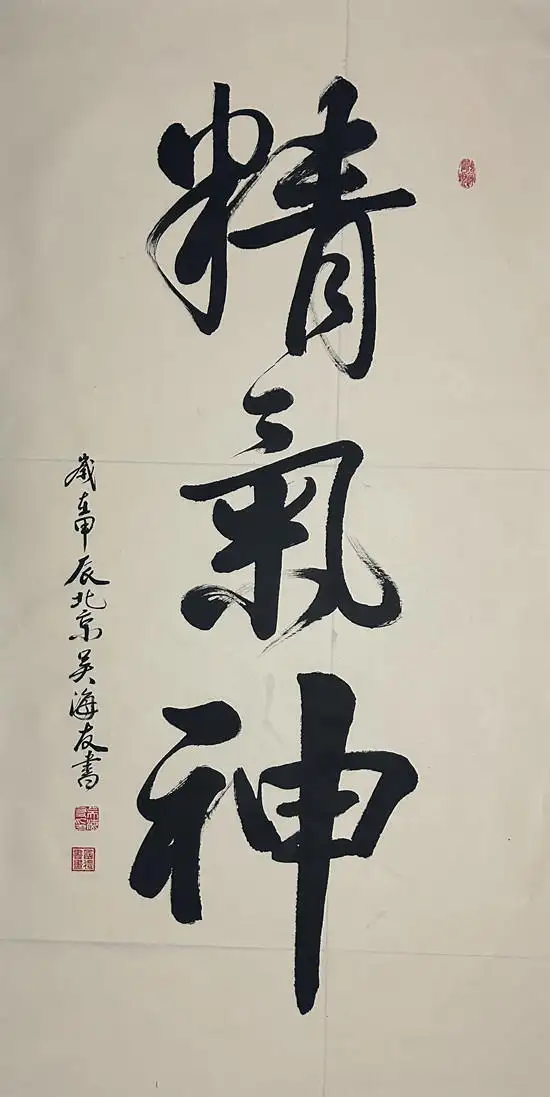 精氣神
歲在甲辰北京吴海友書